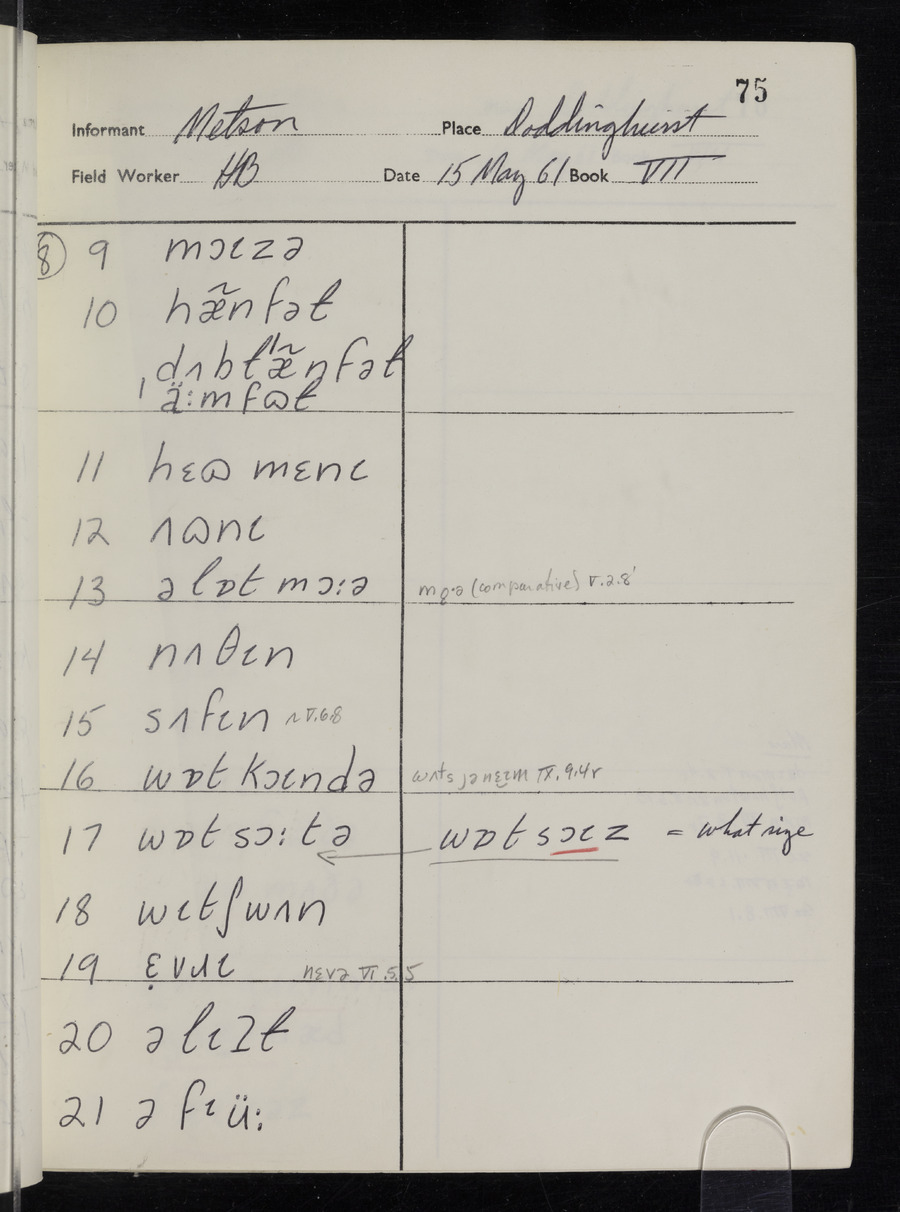 75
Informant Metson Place Doddinghurst
Field Worker HB Date 15 May 61 Book VII
8 9 mɔɩzə
10 hæ̃nfət
ˌdʌbtˈæ̃nfət
ˌä:mfɷt
11 hɛɷ mɛnɩ
12 ʌɷnɩ
13 ə lɒt mɔ:ə mo̞·ə (comparative) V.2.8'
14 nʌθɩn
15 sʌfɩn ʌ V.6.8
16 wɒt kɔɩndə wʌts jə nɛ̞ɩm IX.9.4r
17 wɒt sɔ:tə wɒt sɔɩz = what size
18 wɩtʃwʌn
19 ɛ̣vɹɩ nɛvə VI.5.5
20 ə lɩɪt
21 ə fɩü: